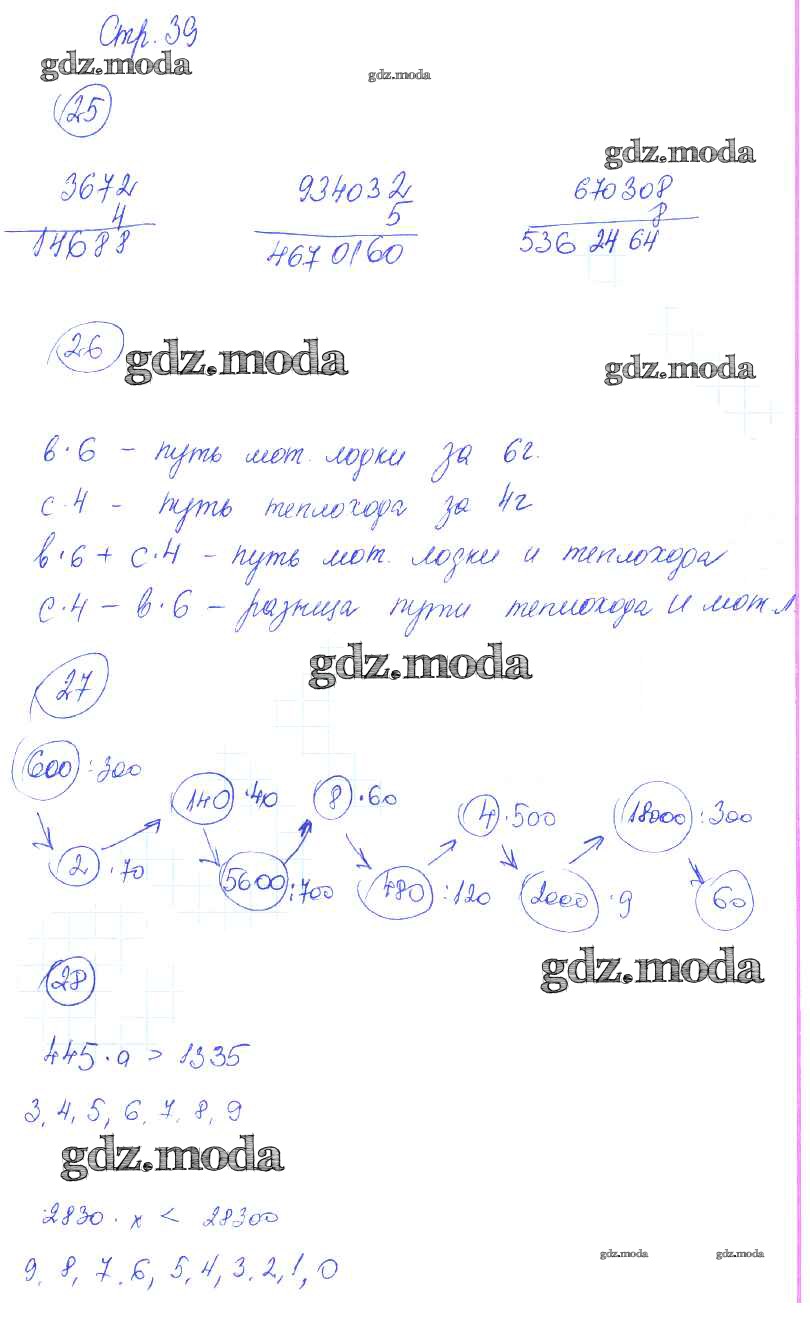 Стр. 39
gdz.moda gdz.moda
25
gdz.moda
3672 934032 670308
4 5 8
14688 4670160 5362464
26 gdz.moda gdz.moda
в·6 – путь мот. лодки за 6г.
с·4 – путь теплохода за 4г
в·6 + с·4 – путь мот. лодки и теплохода
с·4 – в·6 – разница пути теплохода и мот л.
gdz.moda
27
600 :300 140 ·40 8 ·60 4 ·500 18000 :300
2 ·70 5600 :700 480 :120 2000 ·9 60
gdz.moda
28
445·a > 1335
3, 4, 5, 6, 7, 8, 9
gdz.moda
2830 · x < 28300
9, 8, 7, 6, 5, 4, 3, 2, 1, 0
gdz.moda gdz.moda